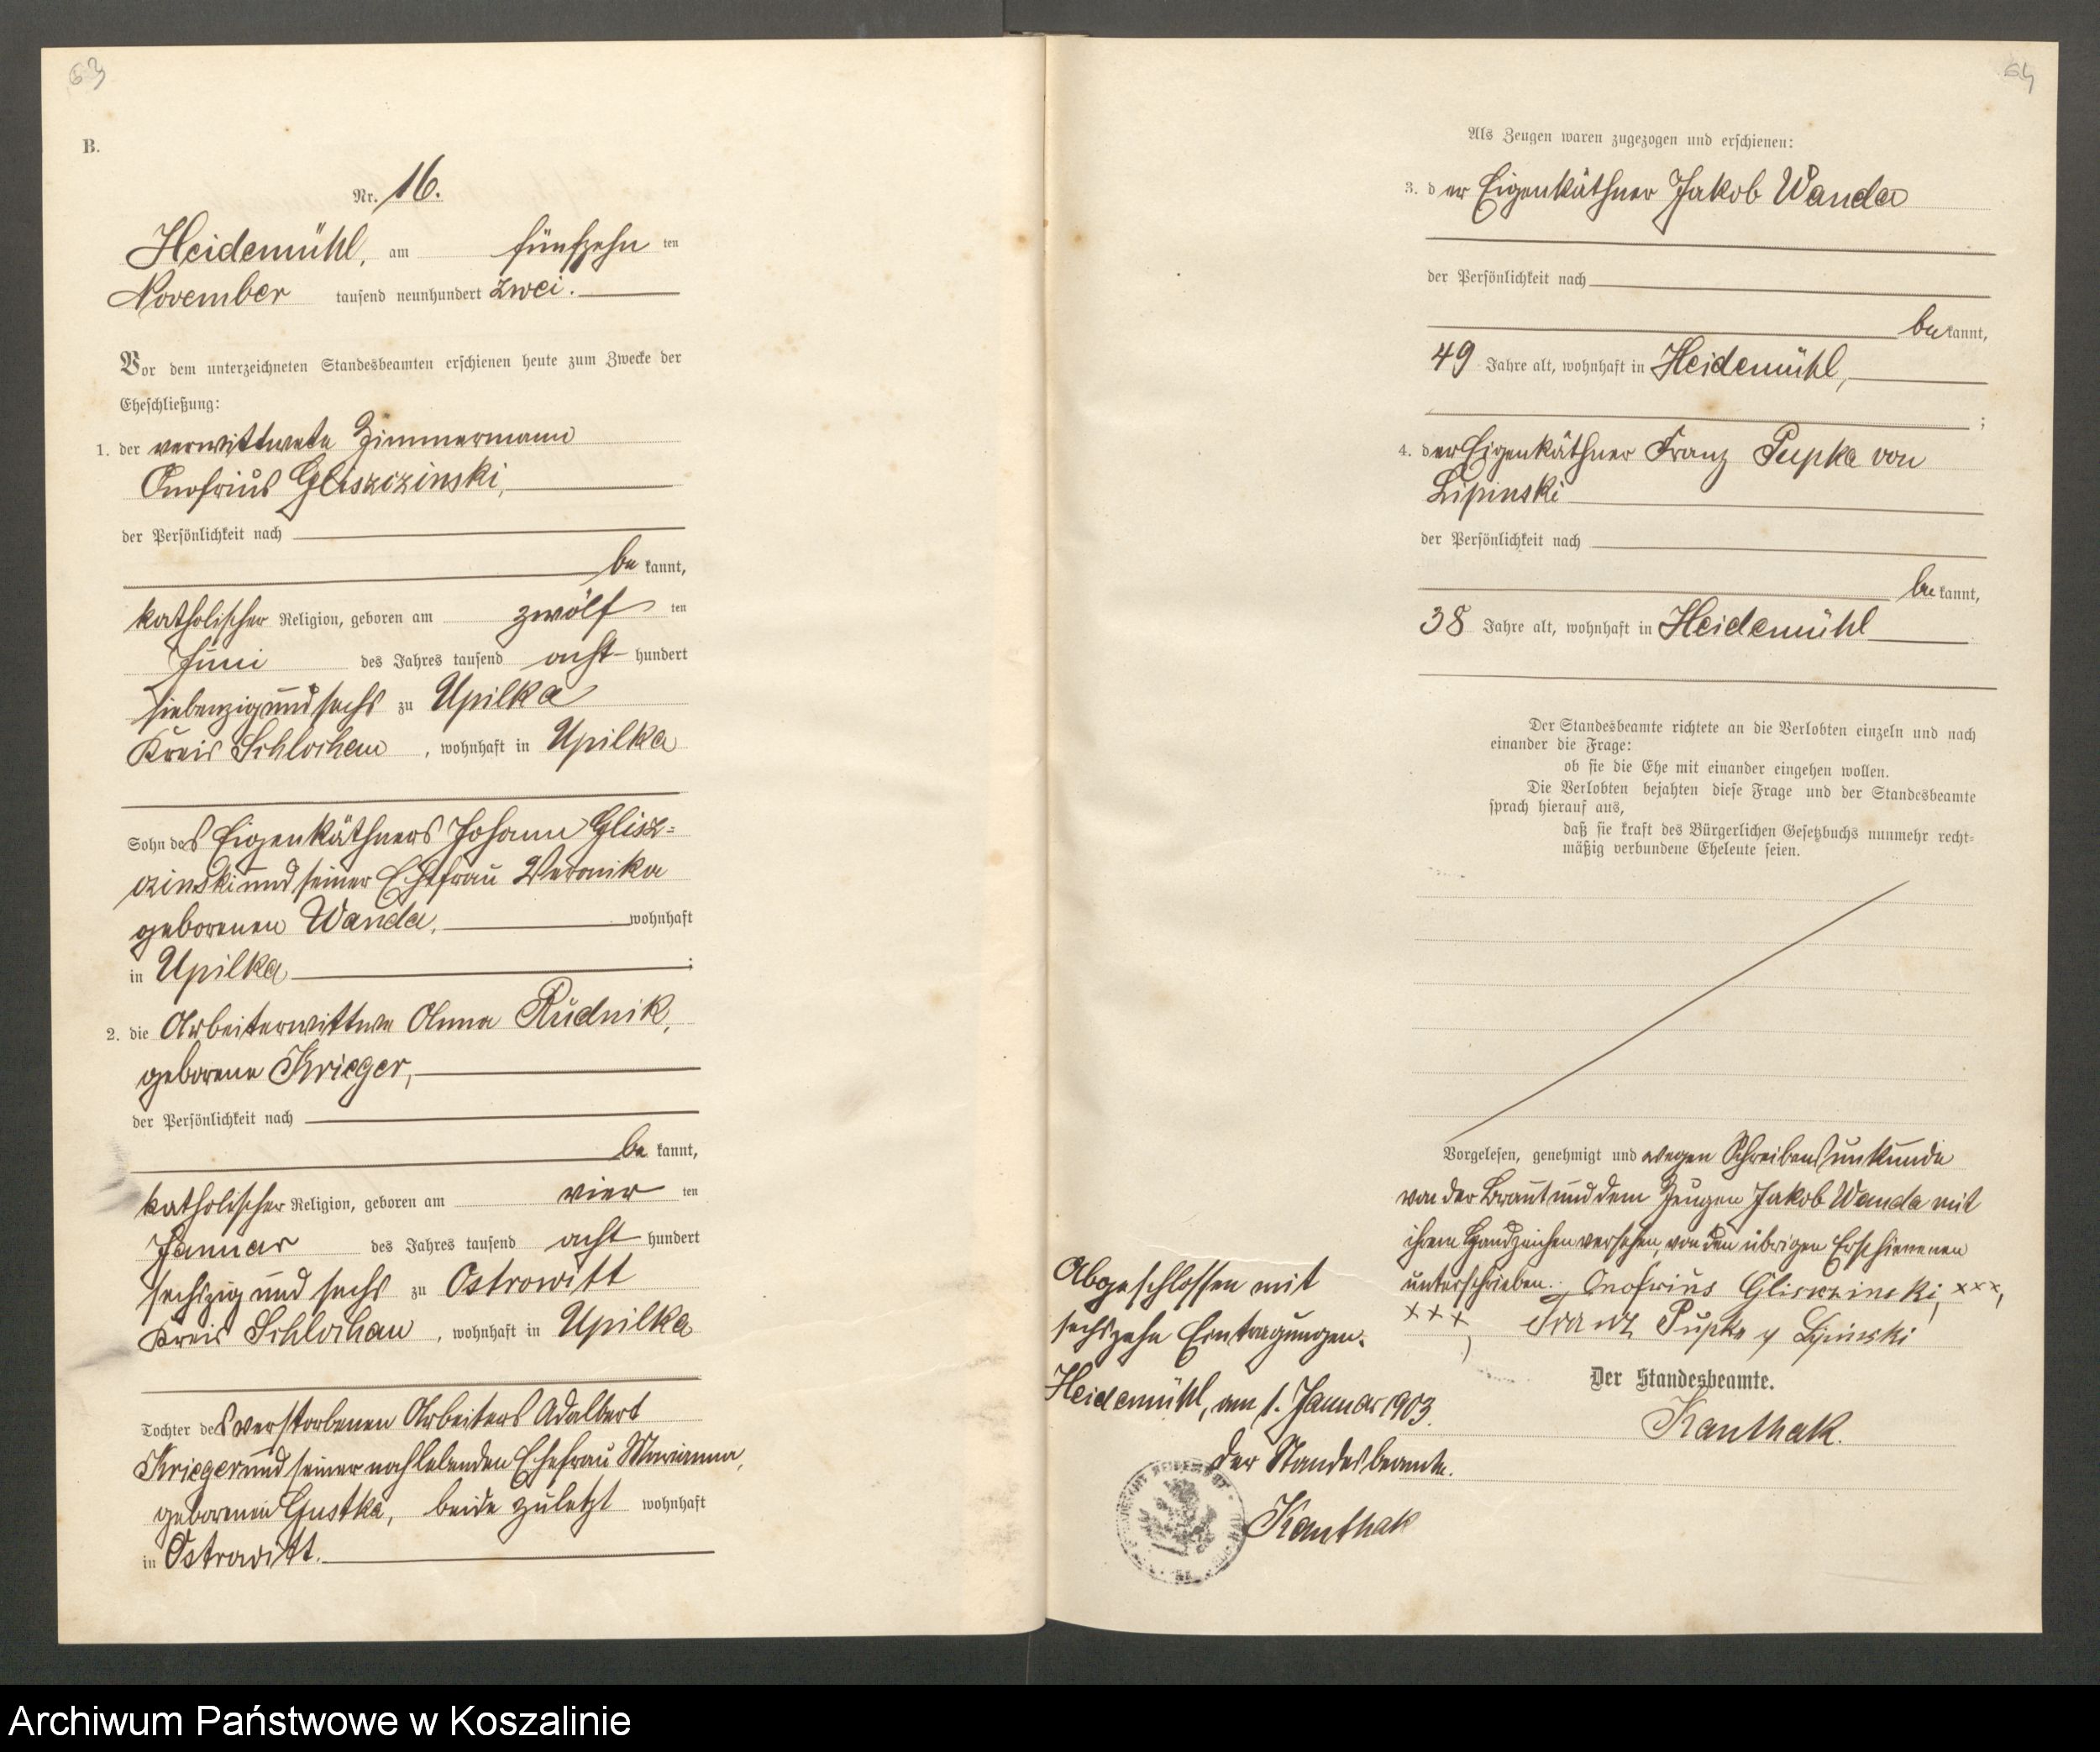 63
B.
Nr. 16.
Heidemühl, am fünfzehn ten
November tausend neunhundert zwei.
Vor dem unterzeichneten Standesbeamten erschienen heute zum Zwecke der
Eheschließung:
1. der verwittwete Zimmermann
Onofrius Gliszczinski,
der Persönlichkeit nach
be kannt,
katholischer Religion, geboren am zwölf ten
Juni des Jahres tausend acht hundert
siebenzig und sechs zu Upilka
Kreis Schlochau, wohnhaft in Upilka
Sohn des Eigenkäthners Johann Glisz=
czinski und seiner Ehefrau Veronika
geborenen Wanda, wohnhaft
in Upilka;
2. die Arbeiterwittwe Anna Rudnik,
geborene Krieger,
der Persönlichkeit nach
be kannt,
katholischer Religion, geboren am vier ten
Januar des Jahres tausend acht hundert
sechszig und sechs zu Ostrowitt
Kreis Schlochau, wohnhaft in Upilka
Tochter des verstorbenen Arbeiters Adalbert
Krieger und seiner nachlebenden Ehefrau Marianna,
geborenen Gustka, beide zuletzt wohnhaft
in Ostrowitt.
64
Als Zeugen waren zugezogen und erschienen:
3. der Eigenkäthner Jakob Wanda
der Persönlichkeit nach
be kannt,
49 Jahre alt, wohnhaft in Heidemühl,
;
4. der Eigenkäthner Franz Pupka von
Lipinski
der Persönlichkeit nach
be kannt,
38 Jahre alt, wohnhaft in Heidemühl
Der Standesbeamte richtete an die Verlobten einzeln und nach
einander die Frage:
ob sie die Ehe mit einander eingehen wollen.
Die Verlobten bejahten diese Frage und der Standesbeamte
sprach hierauf aus,
daß sie kraft des Bürgerlichen Gesetzbuchs nunmehr recht-
mäßig verbundene Eheleute seien.
Vorgelesen, genehmigt und wegen Schreibensunkunde
von der Braut und dem Zeugen Jakob Wanda mit
ihrem Handzeichen versehen, von den übrigen Erschienenen
unterschrieben. Onofrius Gliszczinski, xxx,
xxx, Franz Pupka v Lipinski
Der Standesbeamte.
Kanthak.
Abgeschlossen mit
sechszehn Eintragungen.
Heidemühl, am 1. Januar 1903.
Der Standesbeamte.
Kanthak
Archiwum Państwowe w Koszalinie